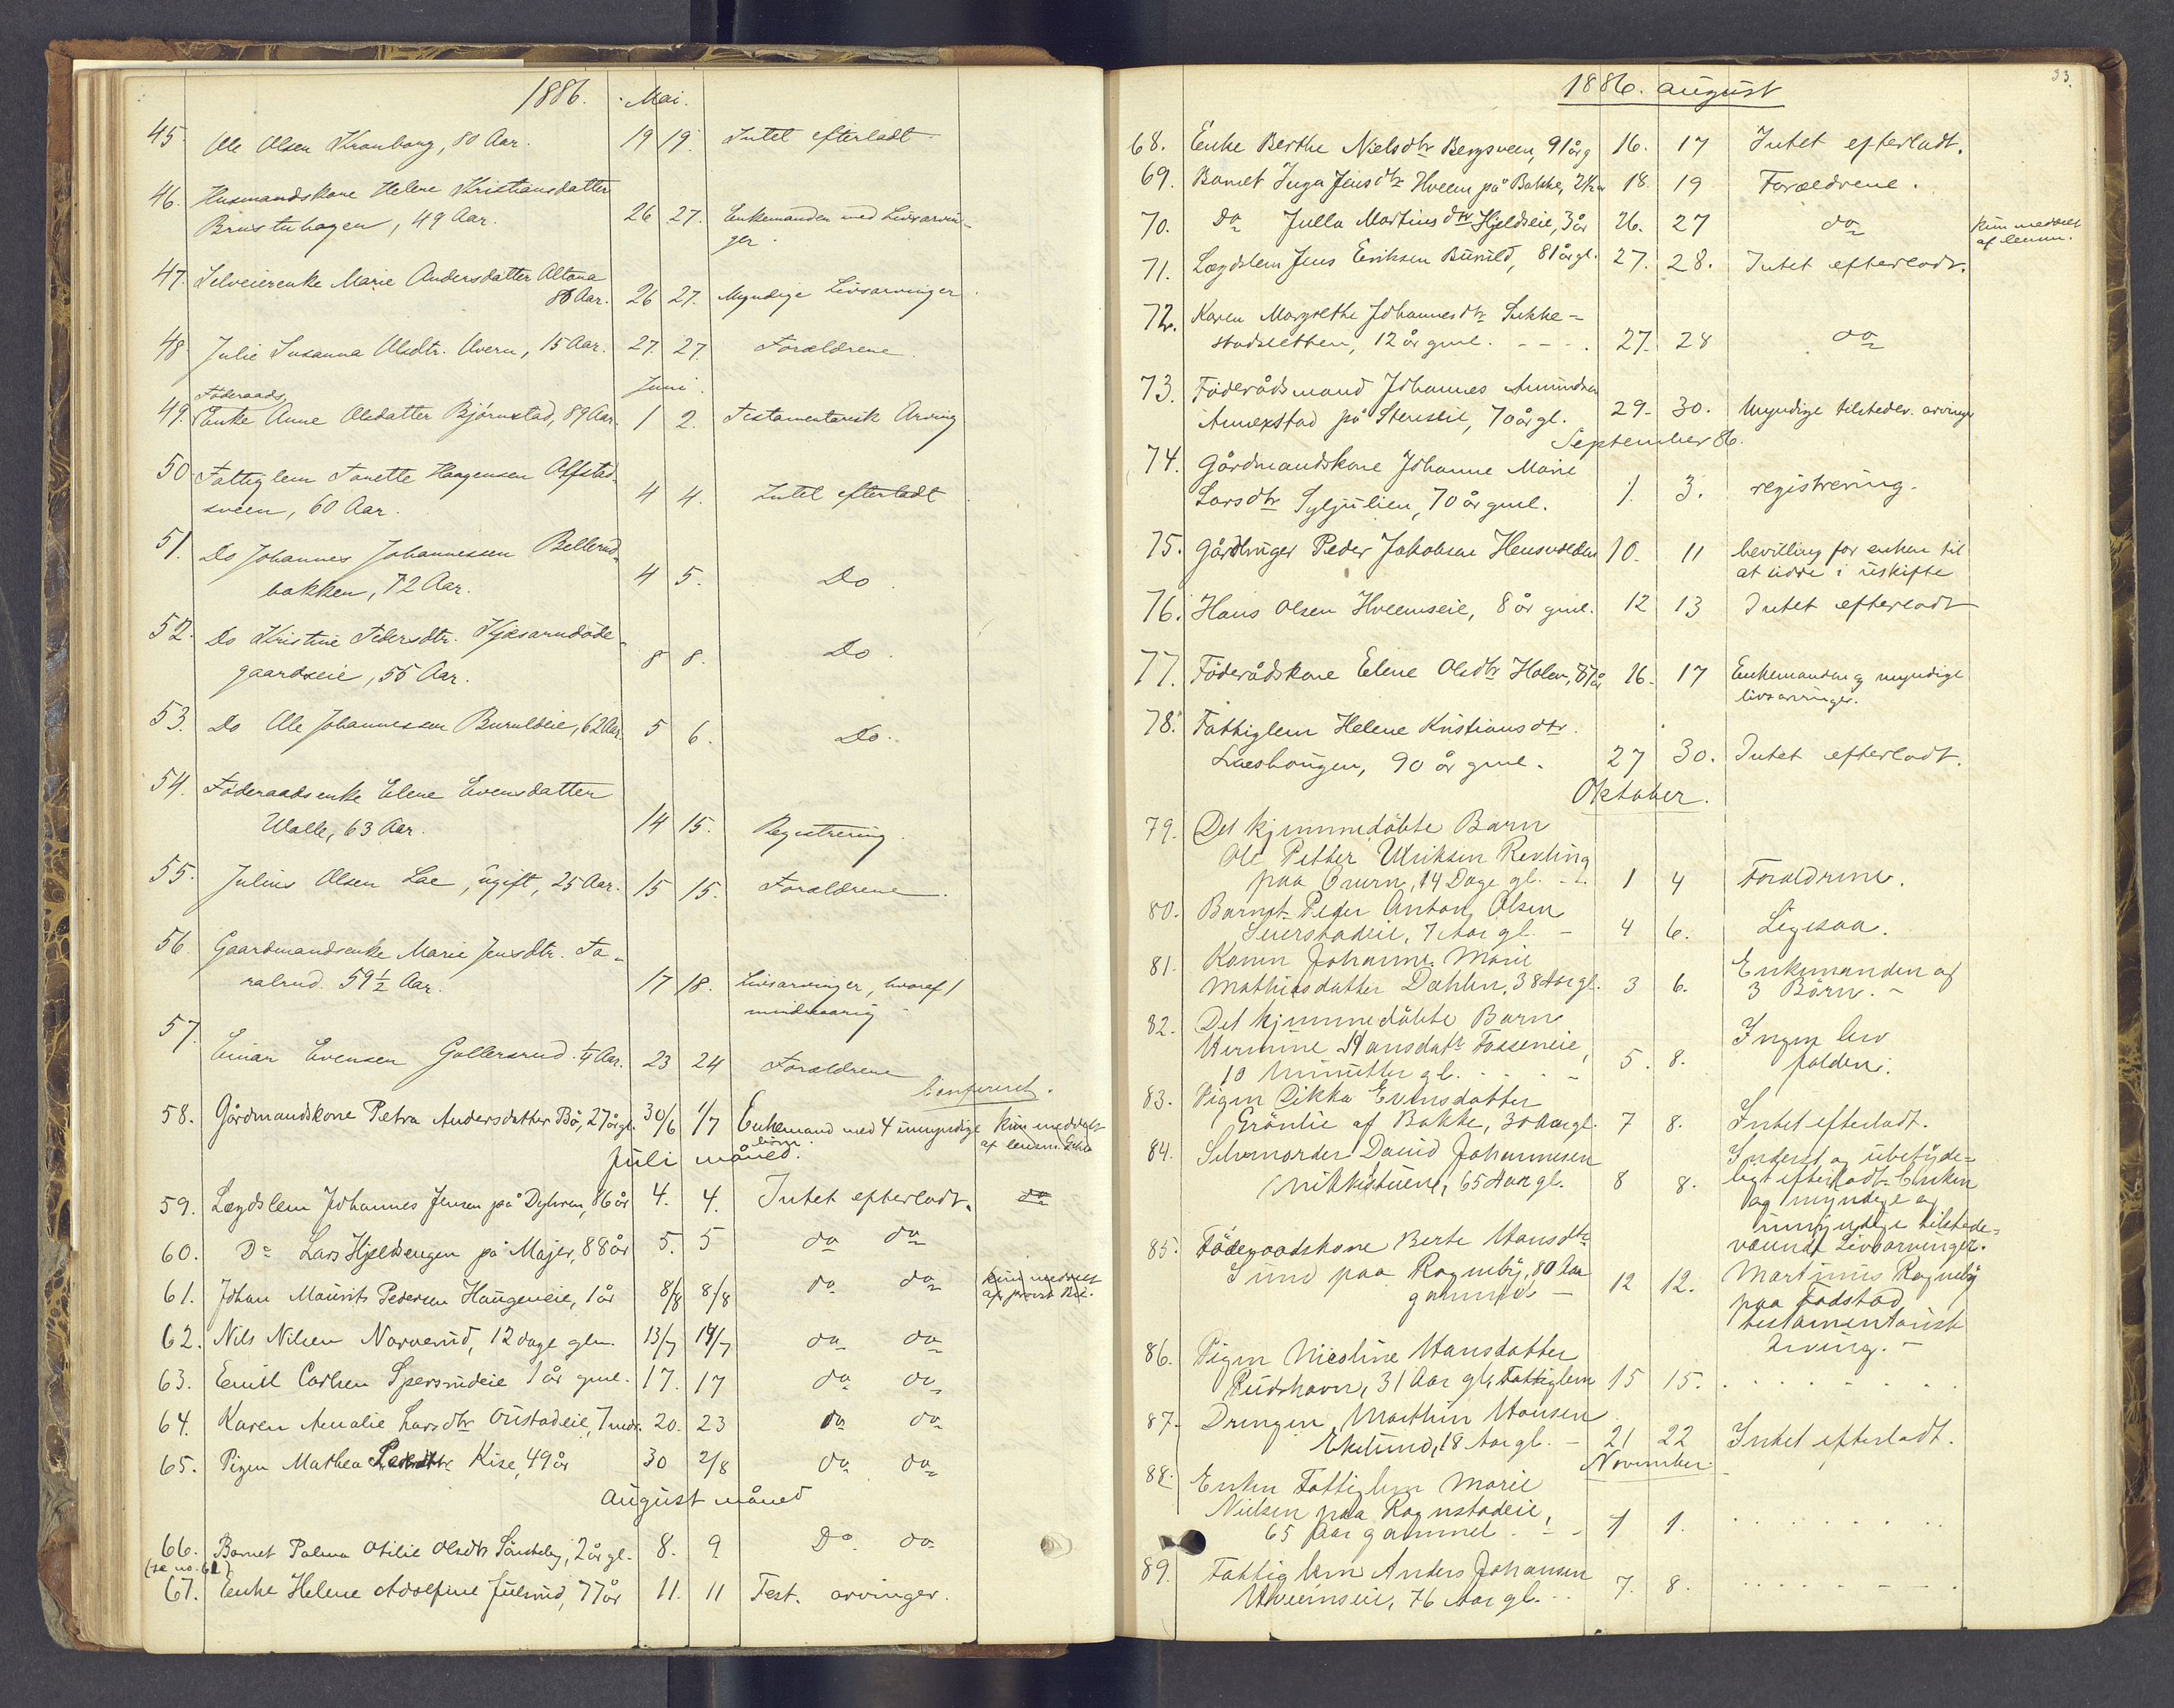 1886. Mai.
45. Ole Olsen Kronborg, 80 Aar. 19 19. Intet efterladt
46. Husmandskone Helene Kristiansdatter
Brustuhagen, 49 Aar. 26 27. Enkemanden med Livsarvin-
ger.
47. Selveierenke Marie Andersdatter Altona
80 Aar. 26 27. Myndige Livsarvinger.
48. Julie Susanna Olsdtr. Alvern, 15 Aar. 27. 27. Forældrene.
Juni.
Föderaads
49. Enke Anne Olsdatter Bjørnstad, 89 Aar. 1 2. Testamentarisk Arving
50. Fattiglem Haagensen Affstad-
sveen, 60 Aar. 4 4. Intet efterladt
51. Do Johannes Johannessen Bellerud-
bakken, 72 Aar. 4 5. Do.
52. Do Kristine Pedersdtr.
gaardseie, 55 Aar. 8 8. Do.
53. Do Ole Johannessen Buruldeie, 62 Aar. 5 6. Do.
54. Föderaadsenke Elene Evensdatter
Walle, 63 Aar. 14 15. Registrering.
55. Julius Olsen Lae, ugift, 25 Aar. 15 15. Forældrene.
56. Gaardmandsenke Marie Jensdtr. Ta-
ralrud. 59 1/2 Aar. 17 18. Livsarvinger, hvoraf 1
mindreaarig
57. Einar Evensen Gollersrud. 1/4 Aar. 23 24 Forældrene
Confereret.
58. Gårdmandskone Petra Andersdatter Bö, 27 år gl. 30/6 1/7 Enkemand med 4 umyndige kun meddelt
börn. af lensm.
Juli måned.
59. Lægdslem Johannes Jensen på Dyhren, 86 år 4. 4. Intet efterladt. do
60. Do Lars Hjeldsengen på Majer, 88 år 5. 5 do do
61. Johan Maurits Pedersen Haugeneie, 1 år 8/8 8/8 do do kun meddelt
af provst
62. Nils Nilsen Norverud, 12 dage glm. 13/7 14/7 do do
63. Emil Carlsen Spersrudeie 1 år gml. 17. 17 do do
64. Karen Amalie Larsdtr Oustadeie, 7 mdr. 20. 23 do do
65. Pigen Mathea Kise, 49 år 30 2/8 do do
August måned
66. Barnet Palma Otilie Olsdtr Sönsteby, 2 år gl. 8. 9. Do do.
(se no. 61)
67. Enke Helene Adolfine Julsrud, 77 år 11. 11 Test. arvinger.
33.
1886. august
68. Enke Berthe Nielsdtr Bergsveen, 91 år g 16. 17 Intet efterladt.
69. Barnet Inga Jensdtr Hveem på Bakke, 18. 19 Forældrene.
70. do Julla Martinsdtr Hjeldseie, 3 år 26. 27 do kun meddelt
af lensm.
71. Lægdslem Jens Eriksen Buruld, 81 år gl. 27. 28. Intet efterladt.
72. Karen Margrethe Johannesdtr Sukke-
stadsletten, 12 år gml. - - - 27. 28 do
73. Föderådsmand Johannes Amundsen
Annexstad på Stenseie, 70 år gl. 29. 30. Myndige tilstedev. arvinger
September 86.
74. Gårdmandskone Johanne Marie
Larsdtr Syljulien, 70 år gml. 1. 3. registrering.
75. Gårdbruger Peder Jakobsen 10. 11 bevilling for enken til
at sidde i uskifte
76. Hans Olsen Hveemseie, 8 år gml. 12 13 Intet efterladt
77. Föderådskone Elene Olsdtr Holen, 87 år 16. 17 Enkemanden og myndige
livsarvinger.
78. Fattiglem Helene Kristiansdtr.
Laeshaugen, 90 år gml. 27 30. Intet efterladt.
Oktober.
79. Det hjemmedöbte Barn
Ole Petter Ulriksen Revling
paa 14 Dage gl. - 1 4 Foraeldrene.
80. Barnet Peder Anton Olsen
7 Aar gl. - 4 6. Ligesaa.
81. Konen Johanne Marie
Mathiasdatter Dæhlen, 38 Aar gl. 3 6. Enkemanden og
3 Börn. -
82. Det hjemmedöbte Barn
Hermine Hansdatr Fosseneie,
10 Minutter gl. - - - 5. 8. Ingen lov
falden.
83. Pigen Rikka Evensdatter
Grönlie af Bakke, 30 Aar gl. 7 8. Intet efterladt.
84. Selvmorder David Johannesen
65 Aar gl. 8 8. Inderst og ubetyde-
ligt efterladt. Enken
og myndige og
umyndige tilstede-
værende Livsarvinger.
85. Föderaadskone Berte Hansdtr
Sund paa Rogneby, 80 Aar
gammel. - 12 12. Martinus Rogneby
paa Fodstad
testamentarisk
Arving. -
86. Pigen Nicoline Hansdatter
Rudshavn, 31 Aar gl. Fattiglem 15 15. . . . . . .
87. Drengen Marthin Hansen
Ekelund, 18 Aar gl. - 21 22 Intet efterladt.
November.
88. Enken Fattiglem Marie
Nielsen paa Rognstadeie,
65 Aar gammel - - 1 1. . . . . . .
89. Fattiglem Anders Johansen
Hveemseie, 76 Aar gl. - 7. 8. . . . . . .